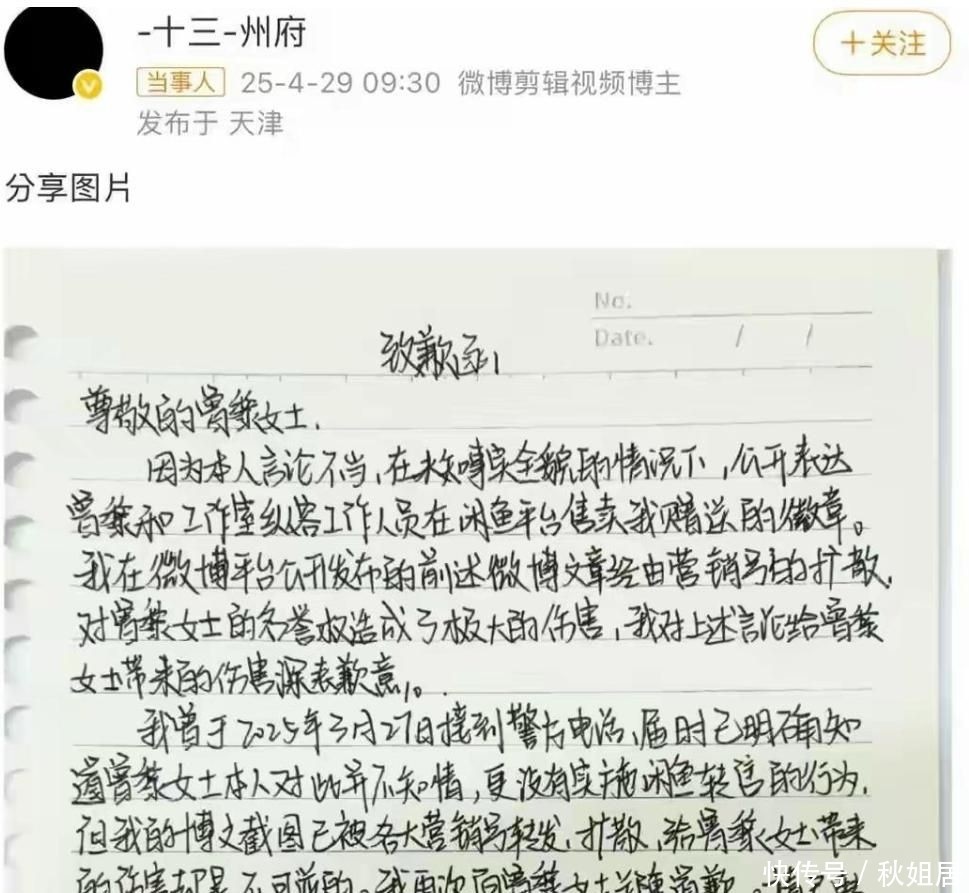 -十三-州府
+关注
当事人 25-4-29 09:30 微博剪辑视频博主
发布于 天津
分享图片
No.
Date. / /
致歉函
尊敬的曾黎女士,
因为本人言论不当,在未知事实全貌的情况下,公开表达
曾黎和工作室纵容工作人员在闲鱼平台售卖我赠送的徽章。
我在微博平台公开发布的前述微博文章经由营销号的扩散,
对曾黎女士的名誉权造成了极大的伤害,我对上述言论给曾黎
女士带来的伤害深表歉意。
我曾于2025年3月27日接到警方电话,届时已明确知
道曾黎女士本人对此并不知情,更没有实施闲鱼转卖的行为,
但我的博文截图已被各大营销号转发、扩散,给曾黎女士带来
的伤害却是不可逆的。我再次向曾黎女士道歉
快传号/秋姐居